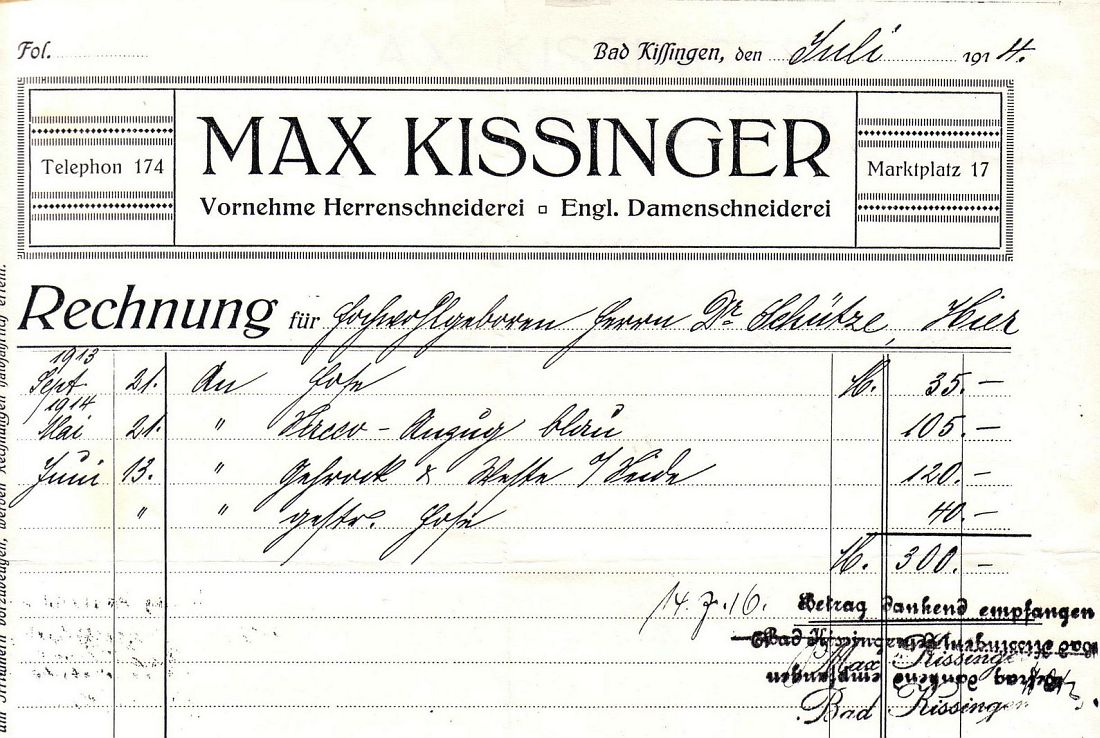 Fol.
Bad Kissingen, den Juli 1914.
Telephon 174
MAX KISSINGER
Vornehme Herrenschneiderei Engl. Damenschneiderei
Marktplatz 17
Rechnung für Hochwohlgeboren Herrn Dr Schütze, Hier
1913
Sept 21. An Hose M. 35.—
1914
Mai 21. " Sacco-Anzug blau 105.—
Juni 13. " Gehrock & Weste a/Seide 120.—
" " gestr. Hose 40.—
M. 300.—
14.7.16. Betrag dankend empfangen
Max Kissinger
Betrag dankend empfangen
Bad Kissingen
um Irrtümern vorzubeugen, werden Rechnungen halbjährlich erteilt.